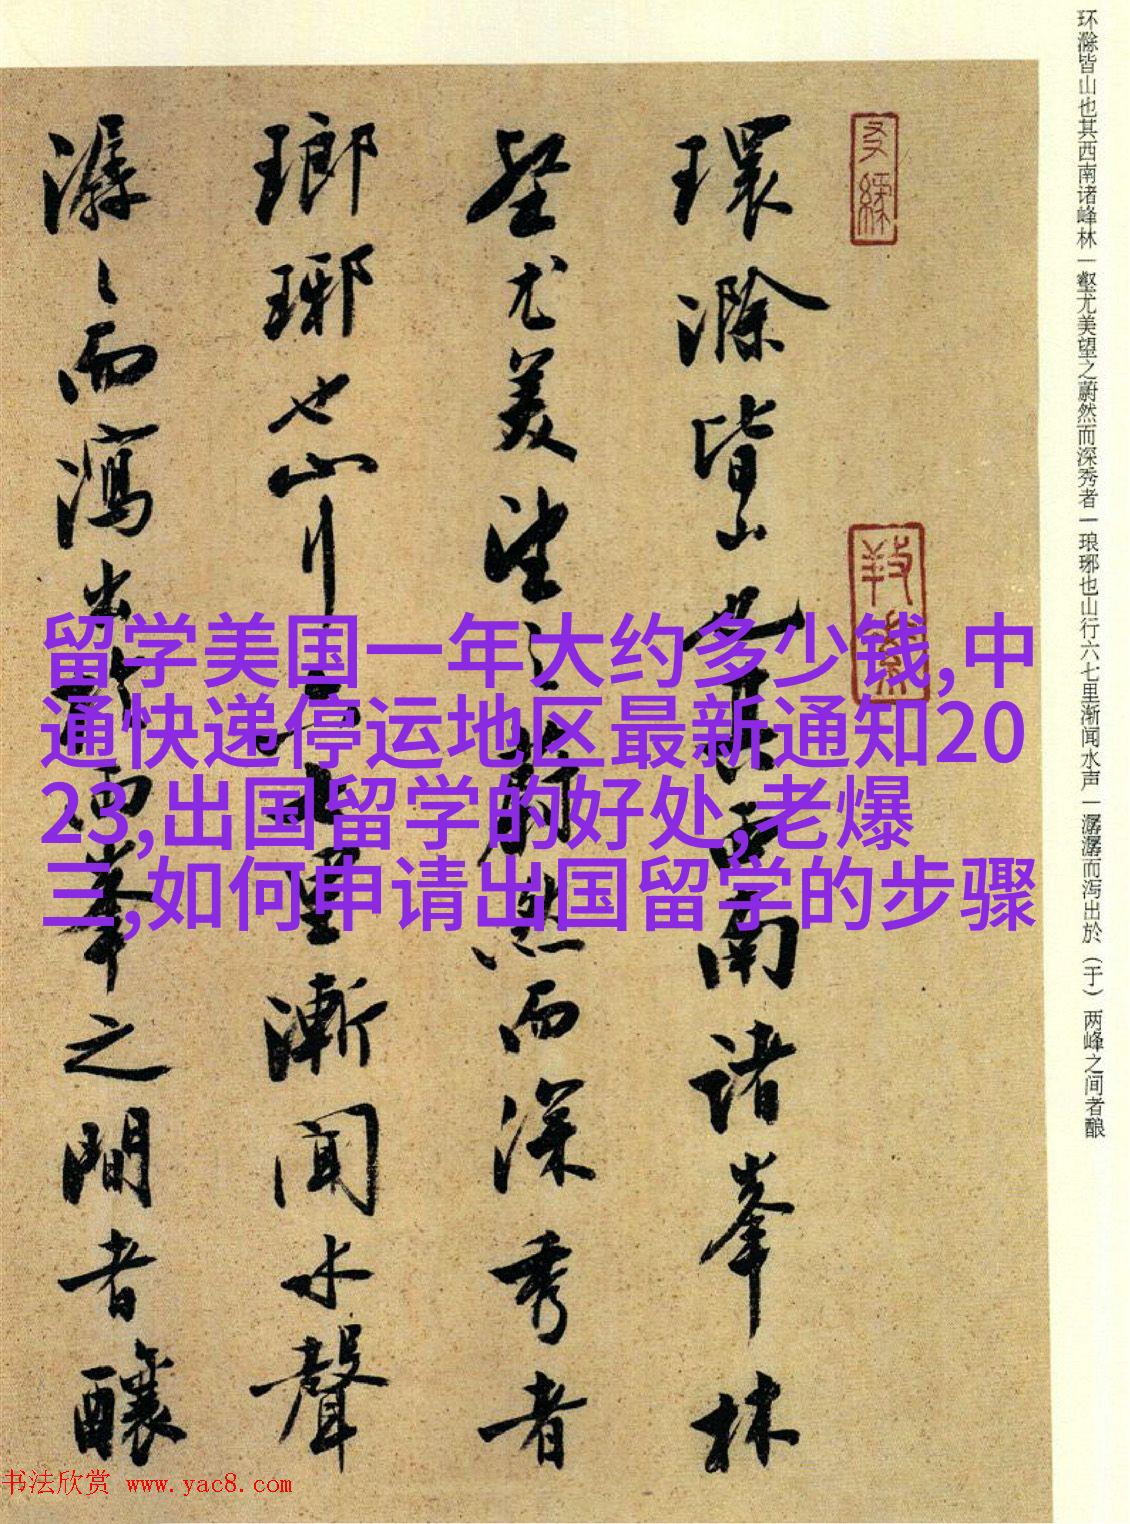 环滁皆山也其西南诸峰林一壑尤美望之蔚然而深秀者一琅琊也山行六七里渐闻水声一潺潺而泻出於（于）两峰之间者酿
環滁皆山也其西南諸峯林
壑尤美望之蔚然而深秀者
瑯琊也山行六七里漸聞水聲
潺々而瀉出於兩峯之間者釀
留学美国一年大约多少钱,中
通快递停运地区最新通知20
23,出国留学的好处,老爆
三,如何申请出国留学的步骤
书法欣赏 www.yac8.com